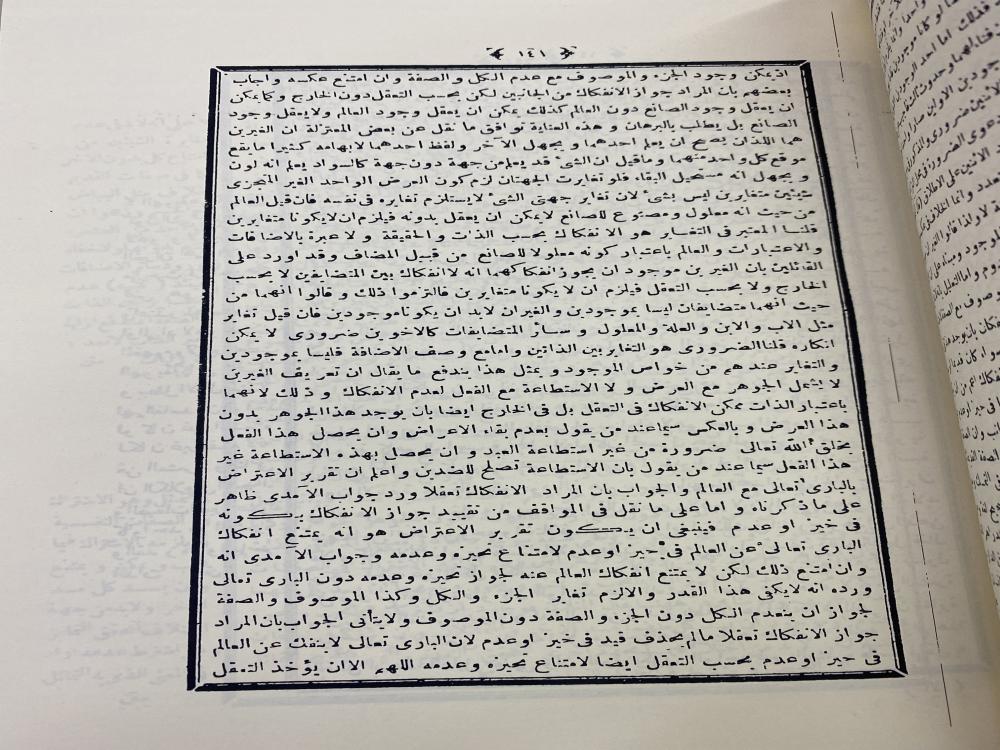 ١٤١
اذ يمكن وجود الجزء والموصوف مع عدم الكل والصفة وان امتنع عكسه واجاب
بعضهم بان المراد جواز الانفكاك من الجانبين لكن بحسب التعقل دون الخارج وكما يمكن
ان يعقل وجود الصانع دون العالم كذلك يمكن ان يعقل وجود العالم ولا يعقل وجود
الصانع بل يطلب بالبرهان وهذه العناية توافق ما نقل عن بعض المعتزلة ان الغيرين
هما اللذان يصح ان يعلم احدهما ويجهل الآخر ولفظ احدهما لابهامه كثيرا ما يقع
موقع كل واحد منهما وما قيل ان الشئ قد يعلم من جهة دون جهة كالسواد يعلم انه لون
و يجهل انه مستحيل البقاء فلو تغايرت الجهتان لزم كون العرض الواحد الغير المتجزى
شيئين متغايرين ليس بشئ لان تغاير جهتى الشئ لا يستلزم تغايره فى نفسه فان قيل العالم
من حيث انه معلول ومصنوع للصانع لا يمكن ان يعقل بدونه فيلزم ان لا يكونا متغايرين
قلنا المعتبر فى التغاير هو الانفكاك بحسب الذات والحقيقة ولا عبرة بالاضافات
والاعتبارات والعالم باعتبار كونه معلولا للصانع من قبيل المضاف وقد اورد على
القائلين بان الغيرين موجودان يجوز انفكاكهما انه لا انفكاك بين المتضايفين لا بحسب
الخارج ولا بحسب التعقل فيلزم ان لا يكونا متغايرين فالتزموا ذلك وقالوا انهما من
حيث انهما متضايفان ليسا بموجودين والغيران لابد ان يكونا موجودين فان قيل تغاير
مثل الاب والابن والعلة والمعلول وسائر المتضايفات كالاخوين ضرورى لا يمكن
انكاره قلنا الضرورى هو التغاير بين الذاتين وامامع وصف الاضافة فليسا بموجودين
والتغاير عندهم من خواص الموجود وبمثل هذا يندفع ما يقال ان تعريف الغيرين
لا يشمل الجوهر مع العرض ولا الاستطاعة مع الفعل لعدم الانفكاك وذلك لانهما
باعتبار الذات يمكن الانفكاك فى التعقل بل فى الخارج ايضا بان يوجد هذا الجوهر بدون
هذا العرض وبالعكس سيما عند من يقول بعدم بقاء الاعراض وان يحصل هذا الفعل
بخلق الله تعالى ضرورة من غير استطاعة العبد وان يحصل بهذه الاستطاعة غير
هذا الفعل سيما عند من يقول بان الاستطاعة تصلح للضدين واعلم ان تقرير الاعتراض
بالبارى تعالى مع العالم والجواب بان المراد الانفكاك تعقلا ورد جواب الآمدى ظاهر
على ما ذكرناه واما على ما نقل فى المواقف من تقييد جواز الانفكاك بكونه
فى حيز او عدم فينبغى ان يكون تقرير الاعتراض هو انه يمتنع انفكاك
البارى تعالى عن العالم فى حيز او عدم لامتناع تحيزه وعدمه وجواب الآمدى انه
وان امتنع ذلك لكن لا يمتنع انفكاك العالم عنه لجواز تحيزه وعدمه دون البارى تعالى
ورده انه لا يكفى هذا القدر والا لزم تغاير الجزء والكل وكذا الموصوف والصفة
لجواز ان ينعدم الكل دون الجزء والصفة دون الموصوف ولا يتأتى الجواب بان المراد
جواز الانفكاك تعقلا مالم يحذف قيد فى حيز او عدم لان البارى تعالى لا ينفك عن العالم
فى حيز او عدم بحسب التعقل ايضا لامتناع تحيزه وعدمه اللهم الا ان يؤخذ التعقل